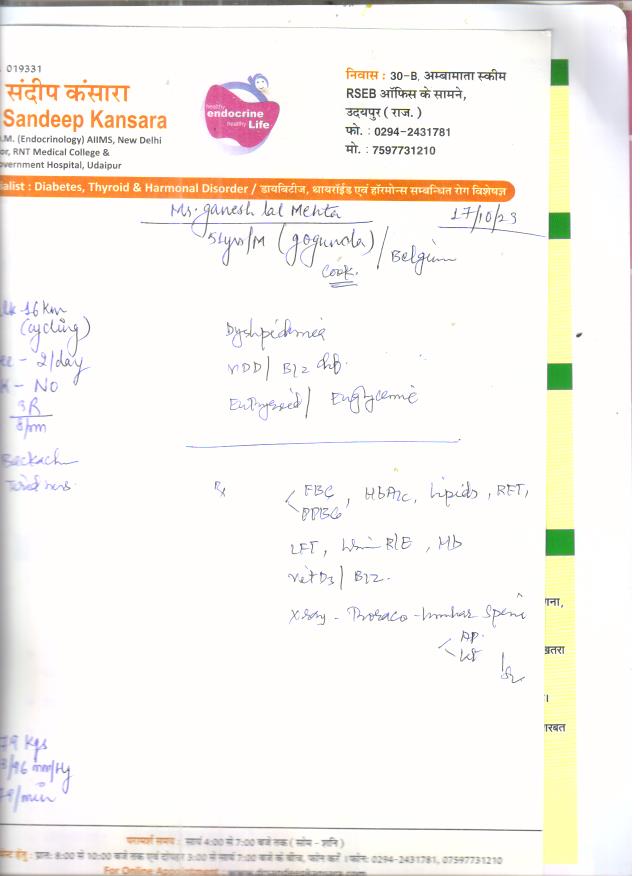 019331
संदीप कंसारा
Sandeep Kansara
.M. (Endocrinology) AIIMS, New Delhi
or, RNT Medical College &
vernment Hospital, Udaipur
healthy
endocrine
healthy Life
निवास : 30-B, अम्बामाता स्कीम
RSEB ऑफिस के सामने,
उदयपुर ( राज. )
फो. : 0294-2431781
मो. : 7597731210
ialist : Diabetes, Thyroid & Harmonal Disorder / डायबिटीज, थायरॉईड एवं हॉरमोन्स सम्बन्धित रोग विशेषज्ञ
Mr. Ganesh lal Mehta
17/10/23
51yrs/M (gogunda) / Belgium
Cook.
16 km
(cycling)
- 2/day
- NO
Backach
Dyslipidemia
VDD / B12 def.
Euthyroid / Euglycemic
Rx
FBG, HbA1c, Lipids, RFT,
PPBG
LFT, Urine R/E, Hb
Vit D3 / B12.
Xray - Thoraco-lumbar Spine
AP.
79 Kgs
/96 mm/Hg
79/min
ाना,
खतरा
।
ारबत
परामर्श समय : सायं 4:00 से 7:00 बजे तक ( सोम - शनि )
हेतु : प्रातः 8:00 से 10:00 बजे तक एवं दोपहर 3:00 से सायं 7:00 बजे के बीच, फोन करें । फोन: 0294-2431781, 07597731210
For Online Appointment : www.drsandeepkansara.com